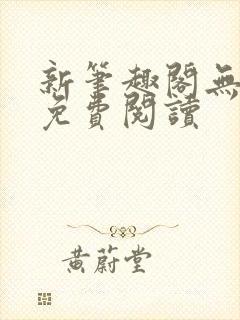 新筆趣閣無
免費閱讀
黃蔚堂